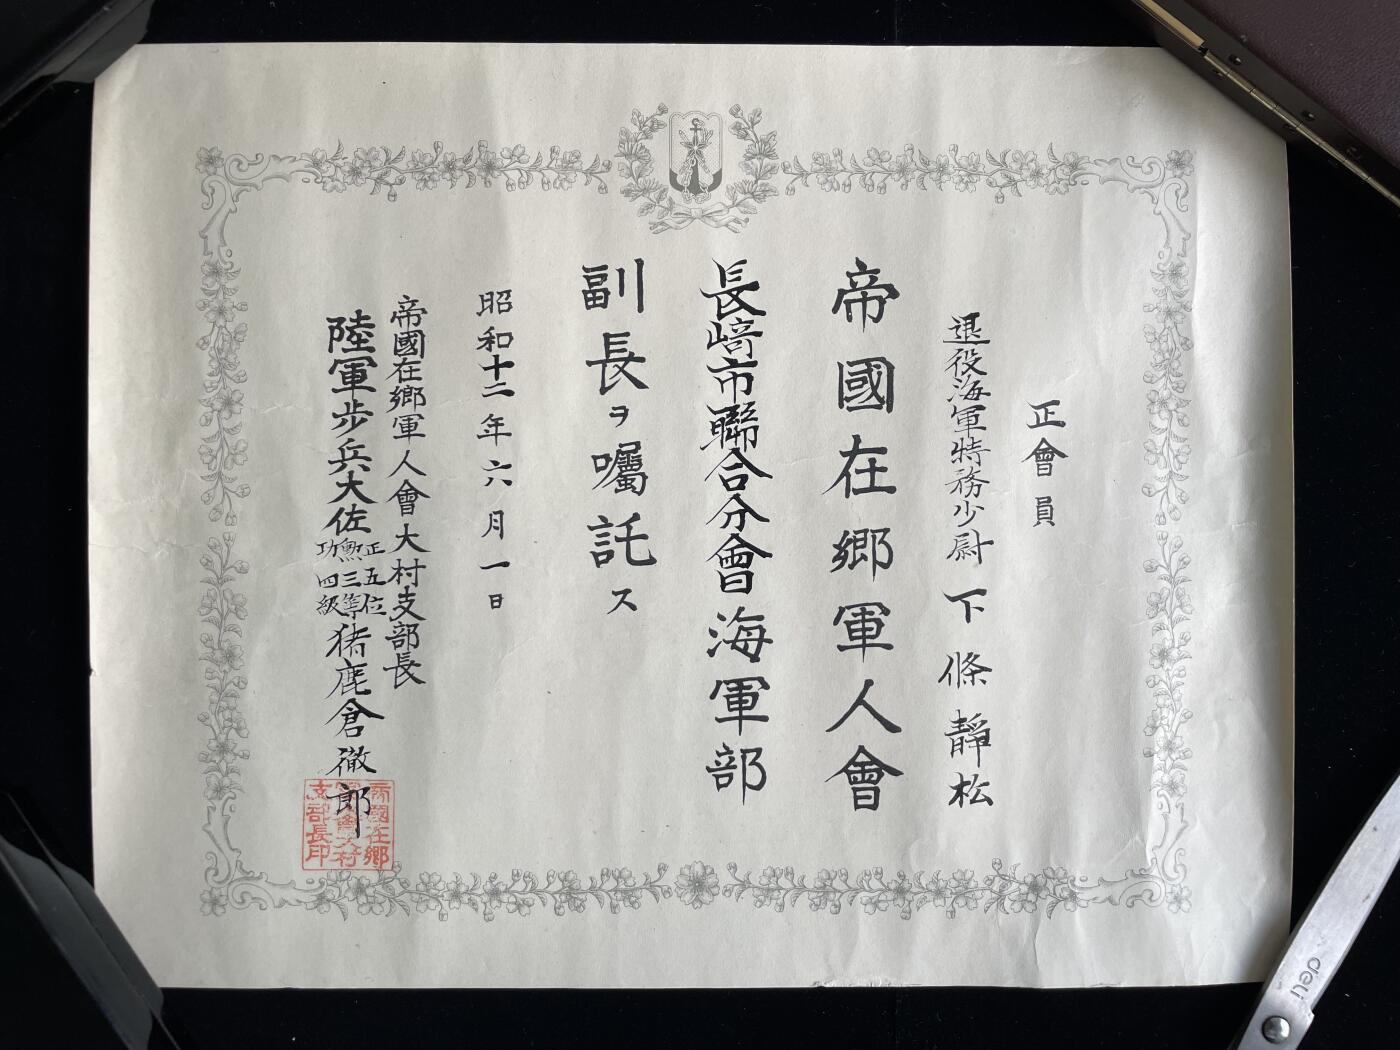 正會員
退役海軍特務少尉 下條靜松
帝國在鄉軍人會
長﨑市聯合分會海軍部
副長ヲ囑託ス
昭和十二年六月一日
帝國在鄉軍人會大村支部長
陸軍步兵大佐
正五位
勲三等
功四級
猪鹿倉徹郎
帝國在鄉
軍人會大村
支部長印
deli